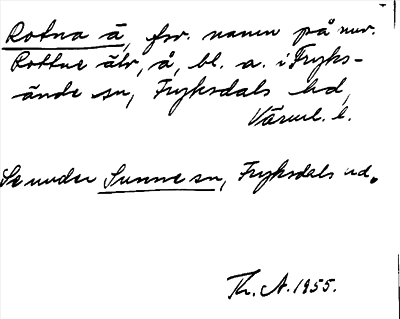 Rotna å, fsv. namn på nuv.
Rottne älv, å, bl. a. i Fryks-
ände sn, Fryksdals hd,
Värml. l.
Se under Sunne sn, Fryksdals hd.
Th. A. 1955.